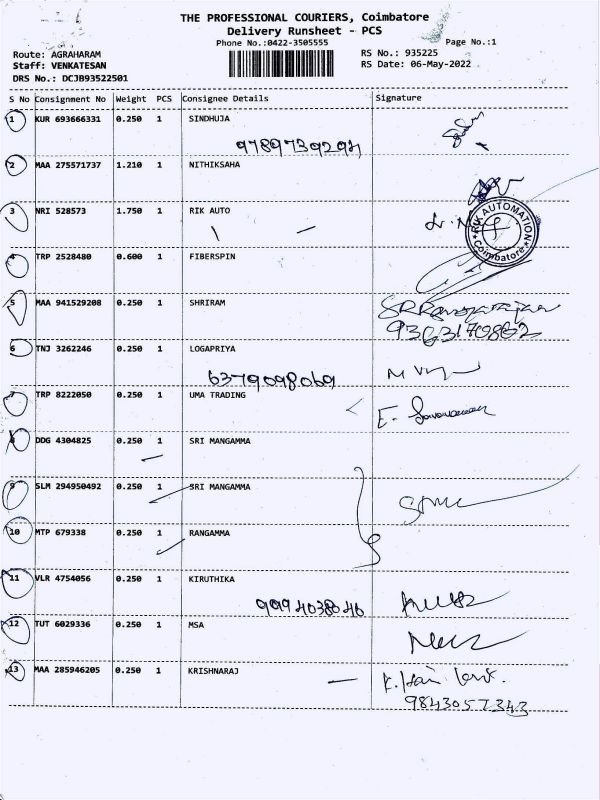 THE PROFESSIONAL COURIERS, Coimbatore
Delivery Runsheet - PCS
Phone No.:0422-3505555
Page No.:1
Route: AGRAHARAM
RS No.: 935225
Staff: VENKATESAN
RS Date: 06-May-2022
DRS No.: DCJB93522501
S No Consignment No Weight PCS Consignee Details Signature
1 KUR 693666331 0.250 1 SINDHUJA
9789739294
2 MAA 275571737 1.210 1 NITHIKSAHA
3 NRI 528573 1.750 1 RIK AUTO
RIK AUTOMATION
Coimbatore
4 TRP 2528480 0.600 1 FIBERSPIN
5 MAA 941529208 0.250 1 SHRIRAM
9363170862
6 TNJ 3262246 0.250 1 LOGAPRIYA
6379098069
7 TRP 8222050 0.250 1 UMA TRADING
E. Saravanan
8 DDG 4304825 0.250 1 SRI MANGAMMA
9 SLM 294950492 0.250 1 SRI MANGAMMA
10 MTP 679338 0.250 1 RANGAMMA
11 VLR 4754056 0.250 1 KIRUTHIKA
9994038046
12 TUT 6029336 0.250 1 MSA
13 MAA 285946205 0.250 1 KRISHNARAJ
9843057343